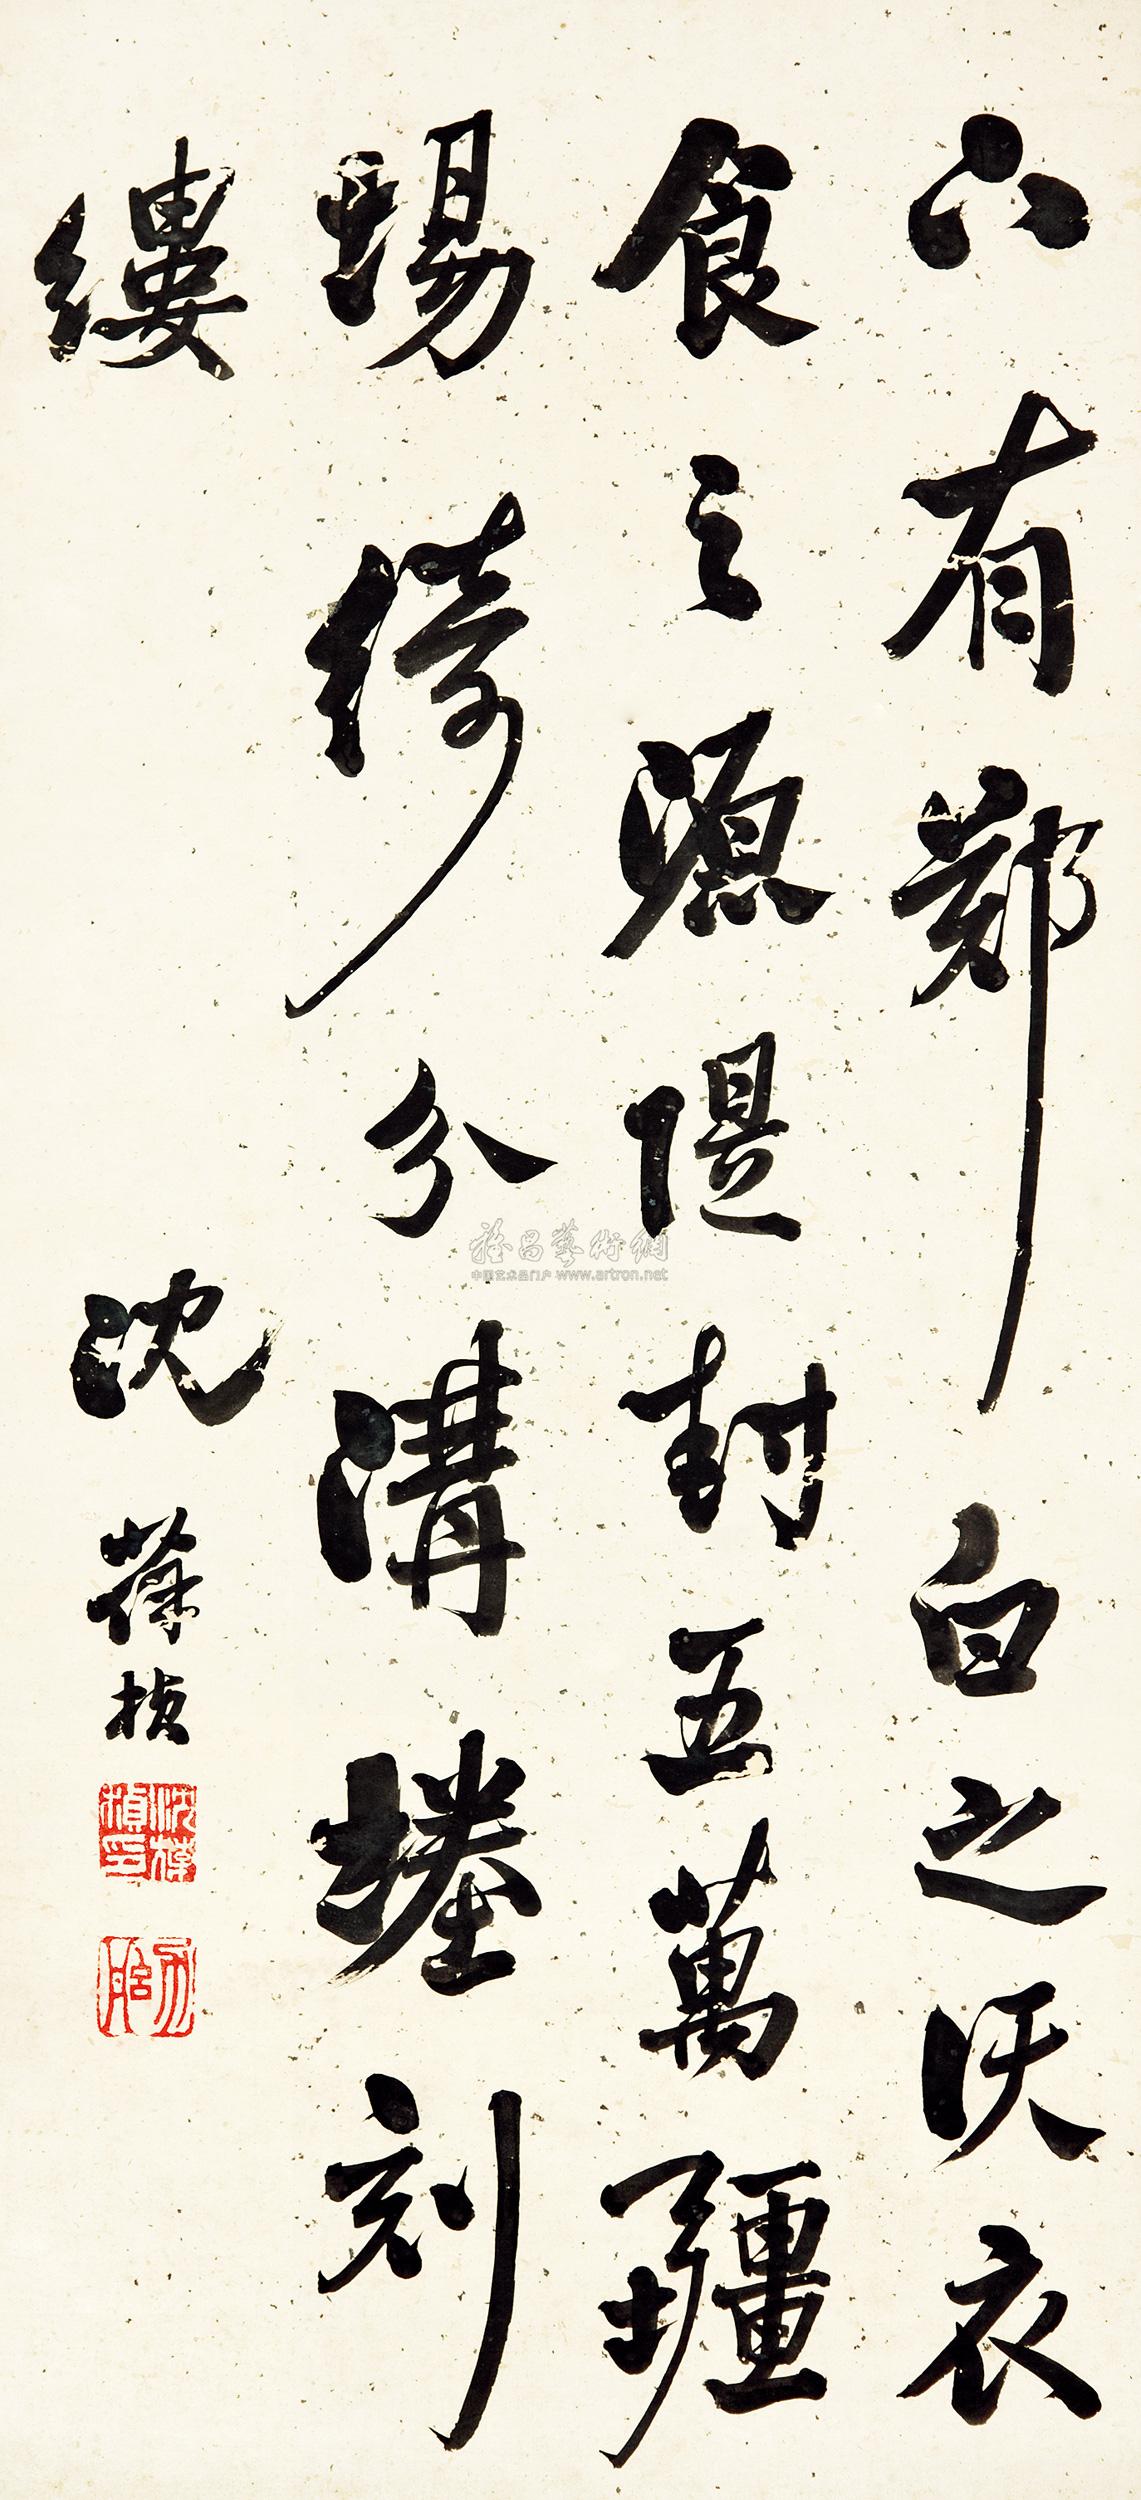 下有鄭白之沃衣
食之源隄封五萬疆
埸綺分溝塍刻
縷
沈葆楨
沈葆楨印
雅昌藝術網
中国艺术品门户 www.artron.net